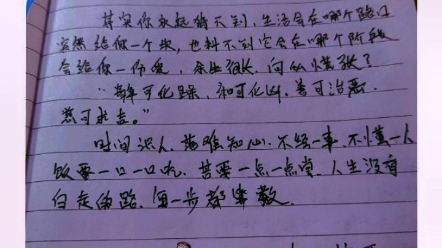 其实你永远猜不到,生活会在哪个路口
突然给你一个坎,也料不到它会在哪个阶段
会给你一份爱,余生很长,何必慌张了
"静可化躁,和可化凶,善可治恶
忍可永吉。"
时间识人,落难知心,不经一事,不懂一人
饭要一口一口吃,苦要一点一点尝,人生没有
白走的路,每一步都算数